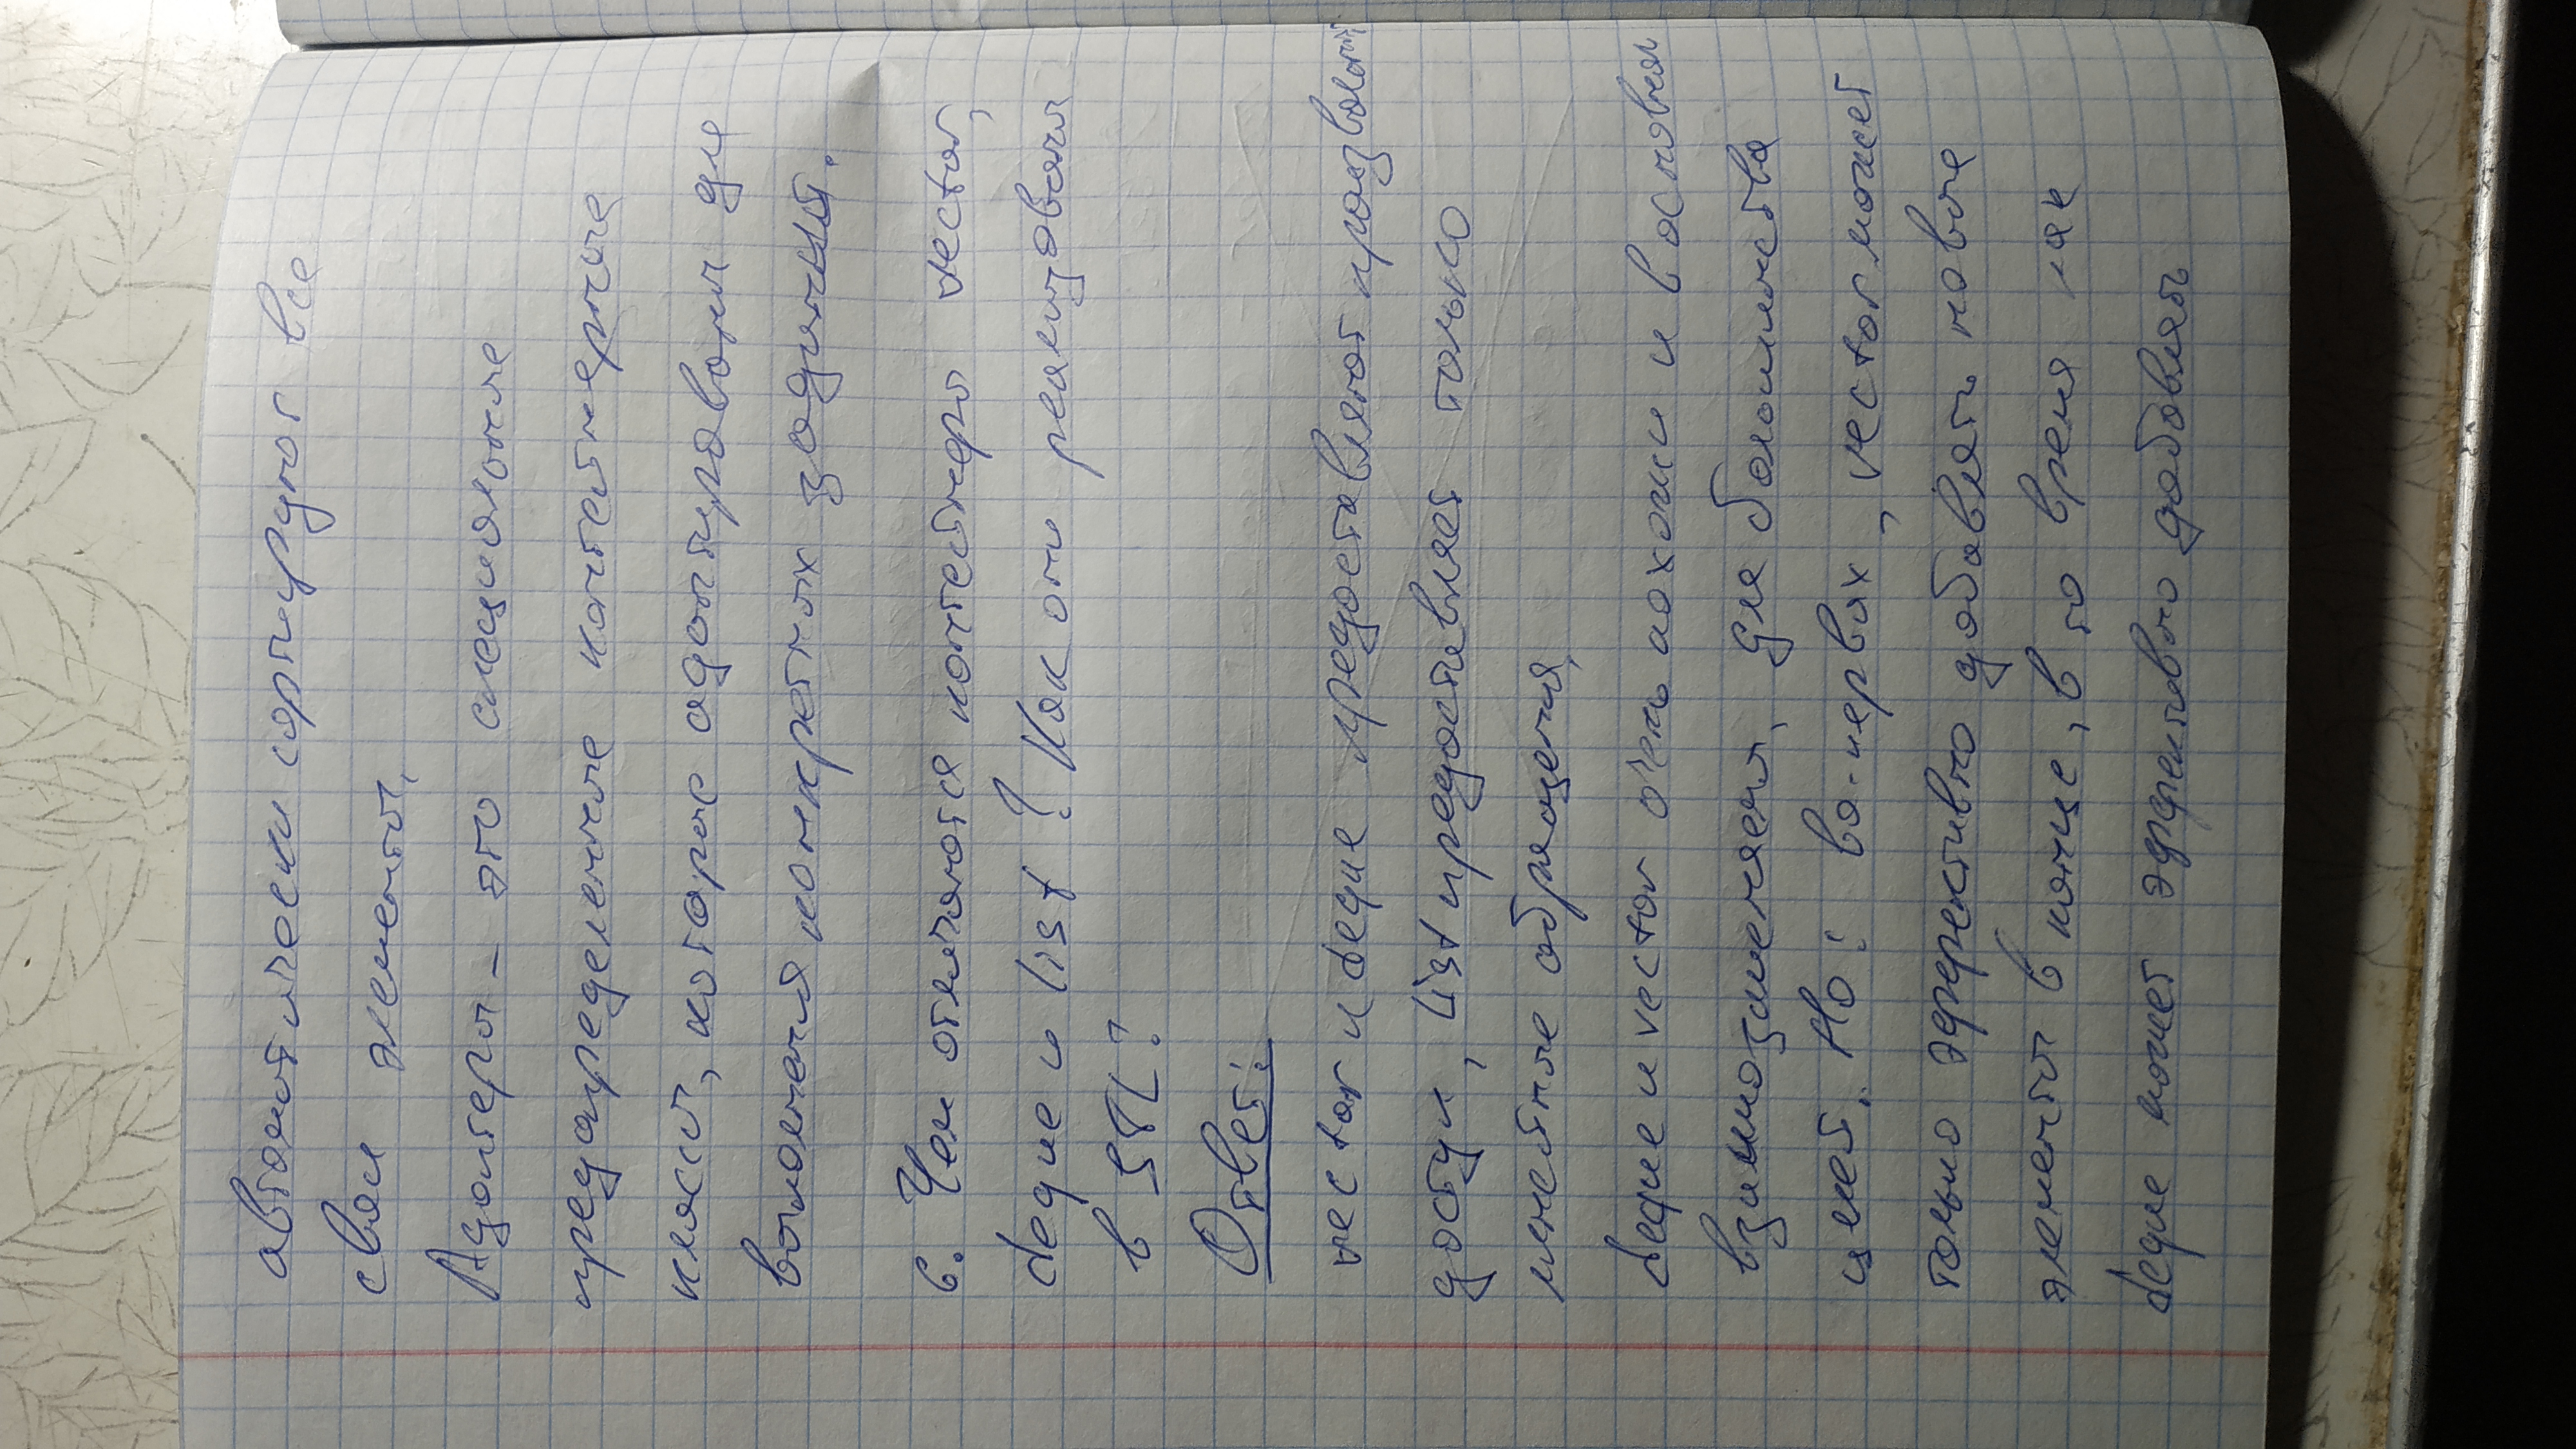 автоматически сортируют все
свои элементы.
Адаптеры - это специальные
предопределенные контейнерные
классы, которые адаптированы для
выполнения конкретных
6. Чем отличаются контейнеры vector,
deque и list? Как они реализованы
в STL?
Ответ:
vector и deque предоставляют
доступ, list предоставляет только
линейные обращения,
deque и vector очень похожи и в основном
взаимозаменяемы, для большинства
целей. Но: во-первых, vector может
только эффективно добавлять новые
элементы в конце, в то время как
deque может эффективно добавлять